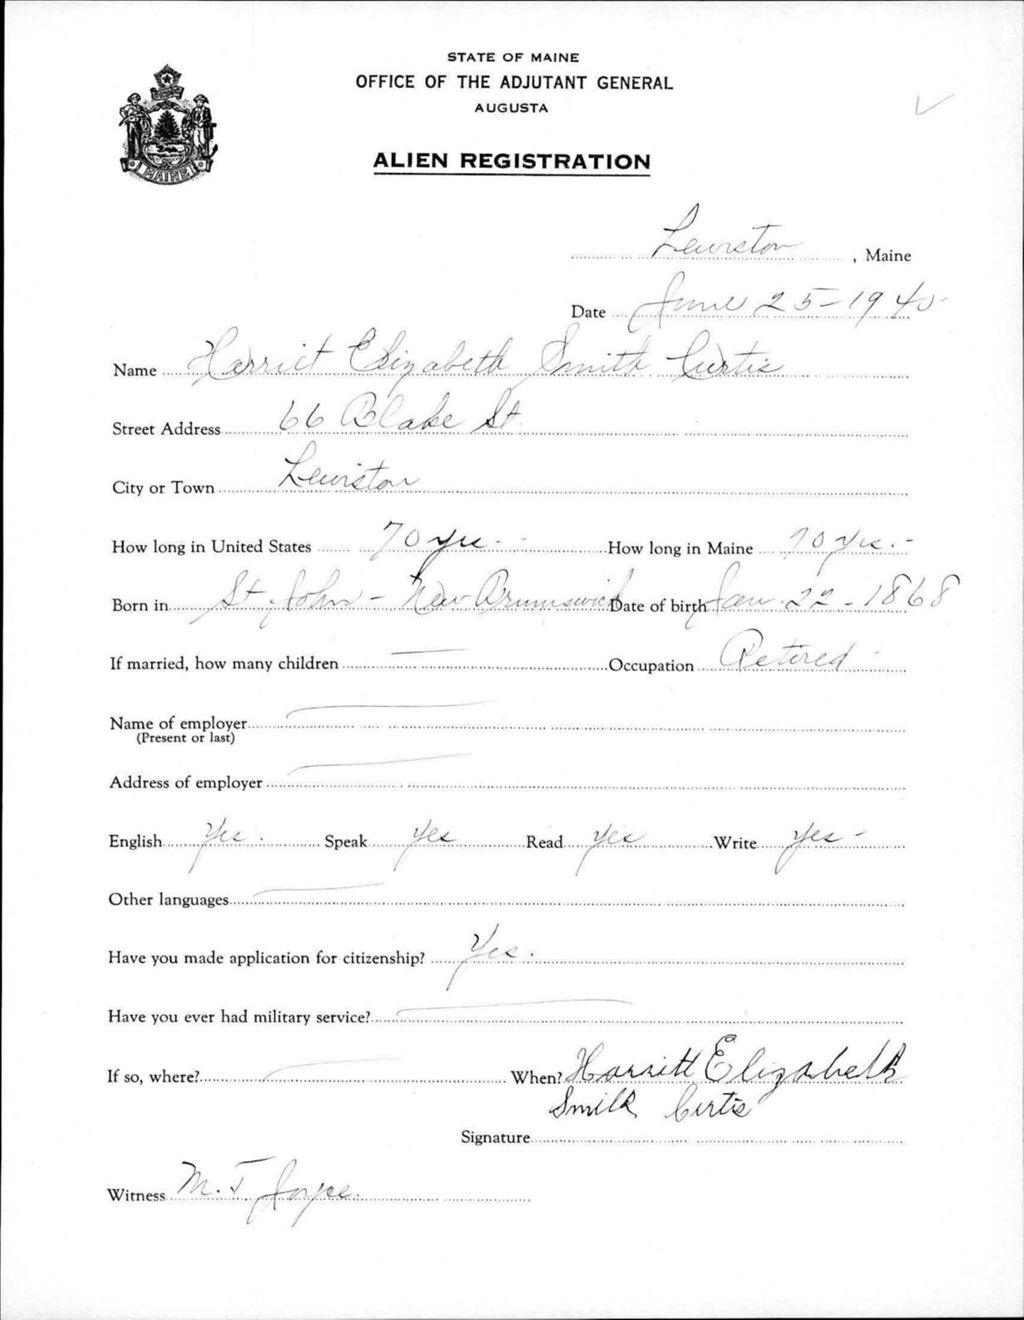 STATE OF MAINE
OFFICE OF THE ADJUTANT GENERAL
AUGUSTA
MAINE
ALIEN REGISTRATION
Lewiston, Maine
Date June 25-1940
Name Harriet Elizabeth Smith Curtis
Street Address 66 Blake St.
City or Town Lewiston
How long in United States 70 yrs. How long in Maine 70 yrs.
Born in St. John - New Brunswick Date of birth Jan. 22 - 1868
If married, how many children — Occupation Retired
Name of employer —
(Present or last)
Address of employer —
English Yes. Speak Yes Read Yes Write Yes
Other languages —
Have you made application for citizenship? Yes.
Have you ever had military service? —
If so, where? — When? Harriett Elizabeth
Smith Curtis
Signature
Witness M. T. Joyce